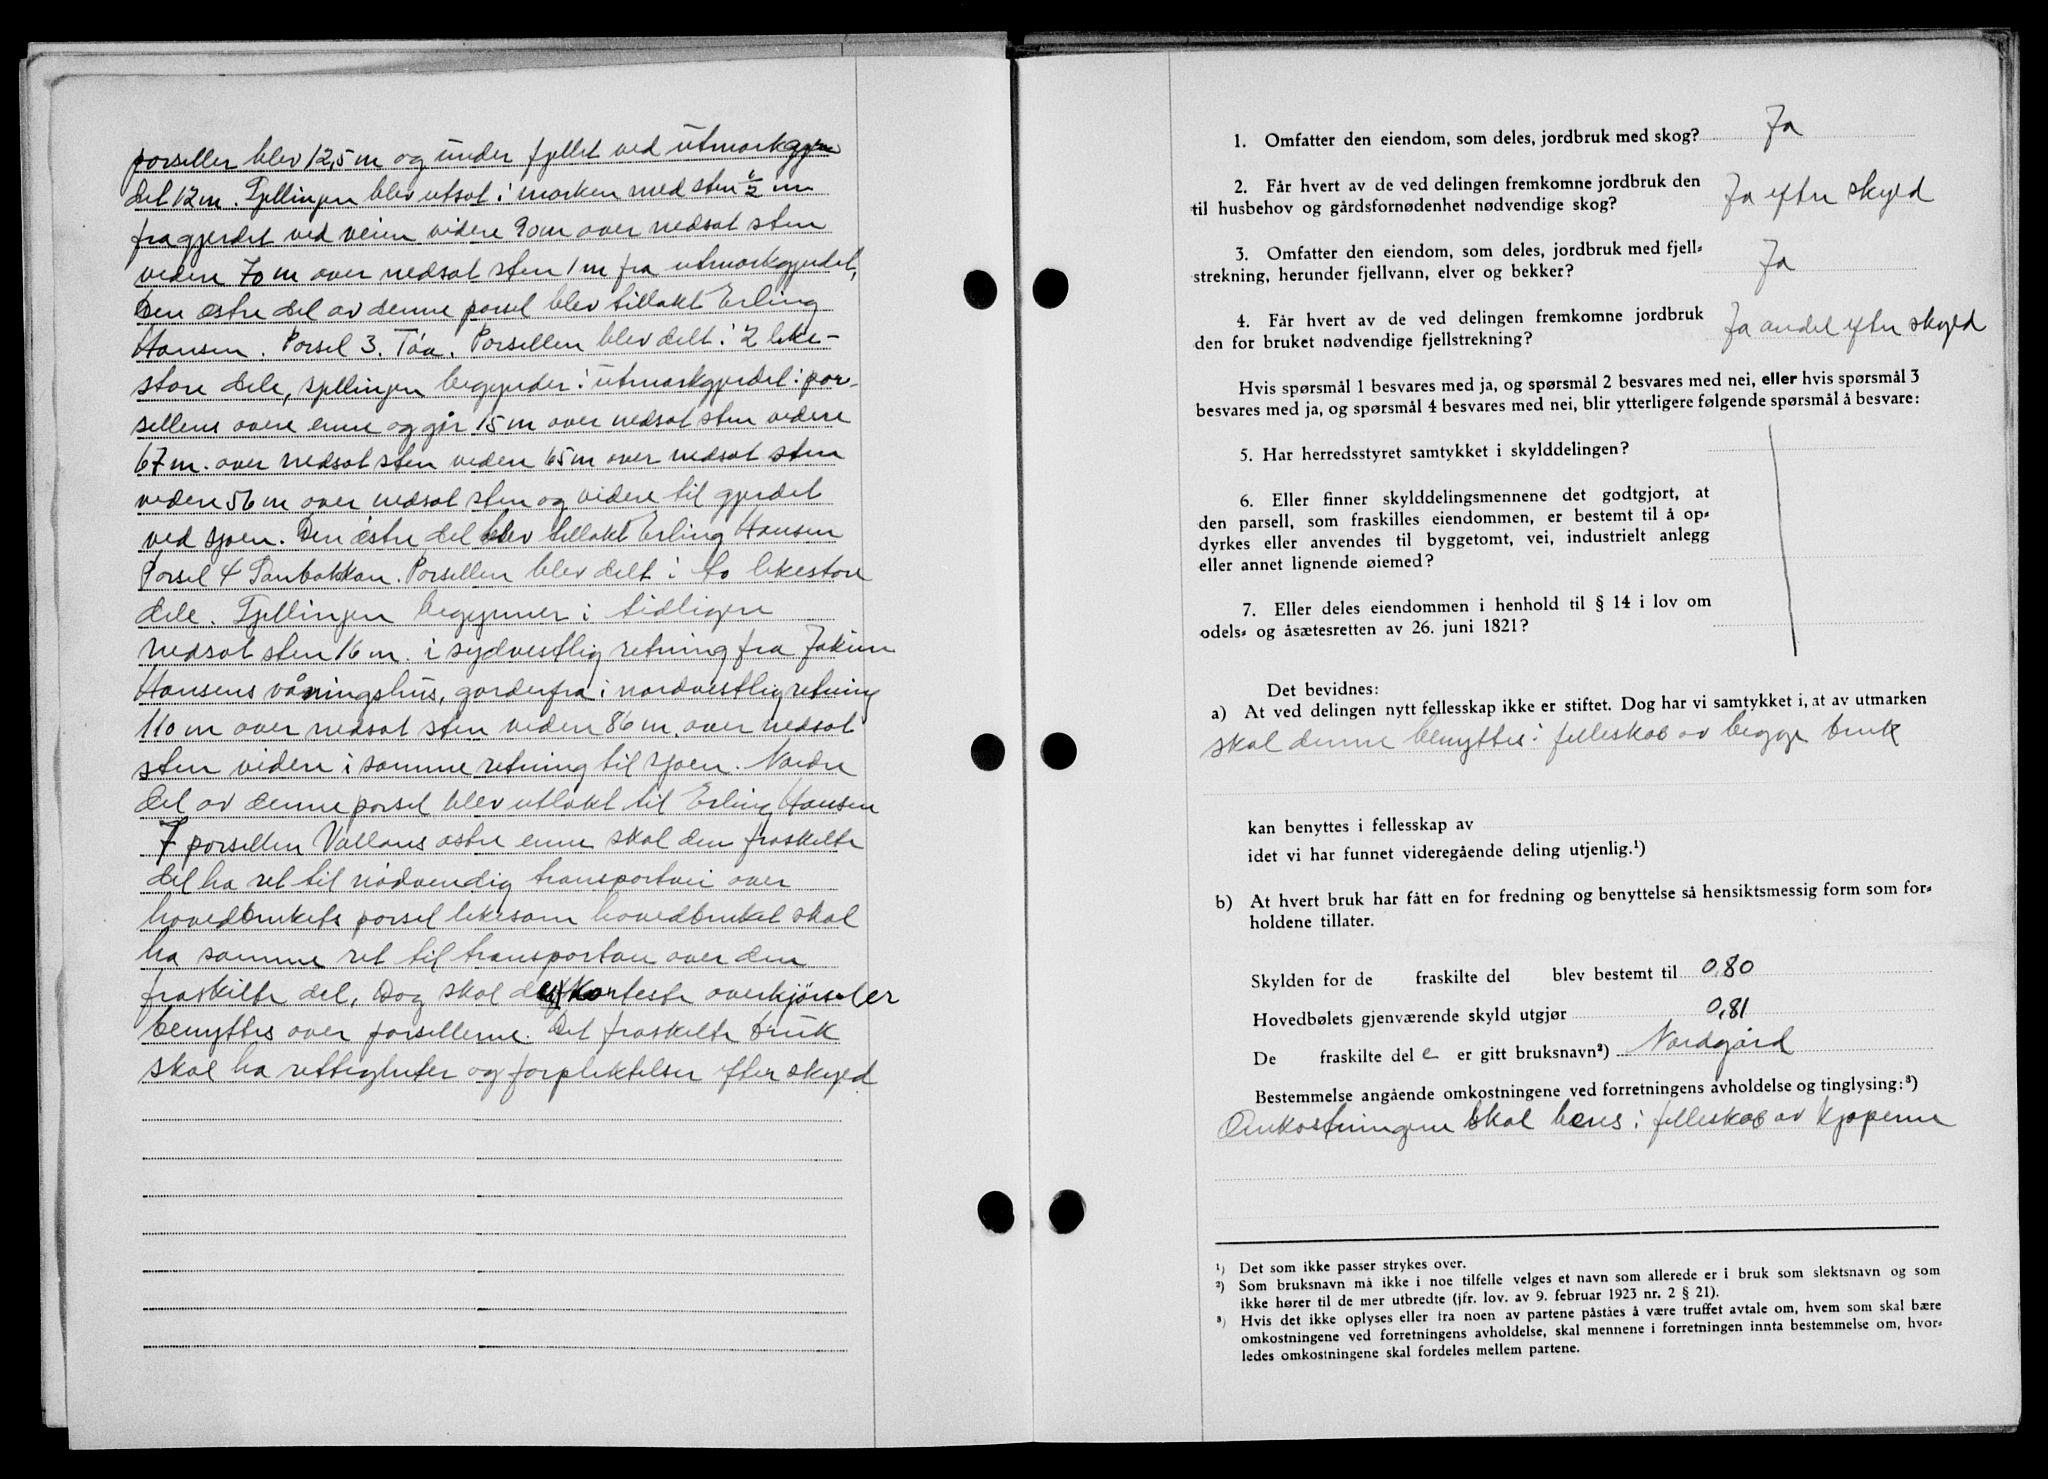 porseller blev 12,5 m og under fjellet ved utmarkgjer
det 12 m. Tjellingen blev utsat i marken med sten 1/2 m
fra gjerdet ved veien videre 90 m over nedsat sten
videre 70 m over nedsat sten 1 m fra utmarkgjerdet,
Den østre del av denne porsel blev tillakt Erling
Hansen. Porsel 3. Tåa. Porsellen blev delt i 2 like-
store dele, tjellingen begynder i utmarkgjerdet i por-
sellens øvre enne og går 15 m over nedsat sten videre
67 m. over nedsat sten videre 65 m over nedsat sten
videre 56 m over nedsat sten og videre til gjerdet
ved sjøen. Den østre del blev tillakt Erling Hansen
Porsel 4 Porsellen blev delt i to likestore
dele. Tjellingen begynner i tidligere
nedsat sten 16 m. i sydvestlig retning fra Jakim
Hansens våningshus, gorderfra i nordvestlig retning
110 m over nedsat sten videre 86 m. over nedsat
sten videre i samme retning til sjøen. Nordre
del av denne porsel blev utlakt til Erling Hansen
I porsellen Vallans østre enne skal den fraskilte
del ha ret til nødvendig transportvei over
hovedbrukets porsel likesom hovedbruket skal
ha samme ret til transportvei over den
fraskilte del. Dog skal de korteste overkjørsler
benyttes over porsellerne. Det fraskilte bruk
skal ha rettigheter og forpliktelser efter skyld
1. Omfatter den eiendom, som deles, jordbruk med skog? Ja
2. Får hvert av de ved delingen fremkomne jordbruk den
til husbehov og gårdsfornødenhet nødvendige skog? Ja efter skyld
3. Omfatter den eiendom, som deles, jordbruk med fjell-
strekning, herunder fjellvann, elver og bekker? Ja
4. Får hvert av de ved delingen fremkomne jordbruk
den for bruket nødvendige fjellstrekning? Ja andel efter skyld
Hvis spørsmål 1 besvares med ja, og spørsmål 2 besvares med nei, eller hvis spørsmål 3
besvares med ja, og spørsmål 4 besvares med nei, blir ytterligere følgende spørsmål å besvare:
5. Har herredsstyret samtykket i skylddelingen?
6. Eller finner skylddelingsmennene det godtgjort, at
den parsell, som fraskilles eiendommen, er bestemt til å op-
dyrkes eller anvendes til byggetomt, vei, industrielt anlegg
eller annet lignende øiemed?
7. Eller deles eiendommen i henhold til § 14 i lov om
odels- og åsætesretten av 26. juni 1821?
Det bevidnes:
a) At ved delingen nytt fellesskap ikke er stiftet. Dog har vi samtykket i, at av utmarken
skal denne benyttes i felleskab av begge bruk
kan benyttes i fellesskap av
idet vi har funnet videregående deling utjenlig.¹)
b) At hvert bruk har fått en for fredning og benyttelse så hensiktsmessig form som for-
holdene tillater.
Skylden for de fraskilte del blev bestemt til 0,80
Hovedbølets gjenværende skyld utgjør 0,81
De fraskilte del e er gitt bruksnavn²) Nordgård
Bestemmelse angående omkostningene ved forretningens avholdelse og tinglysing:³)
Omkostningene skal bæres i felleskab av kjøperne
¹) Det som ikke passer strykes over.
²) Som bruksnavn må ikke i noe tilfelle velges et navn som allerede er i bruk som slektsnavn og som
ikke hører til de mer utbredte (jfr. lov. av 9. februar 1923 nr. 2 § 21).
³) Hvis det ikke oplyses eller fra noen av partene påståes å være truffet avtale om, hvem som skal bære
omkostningene ved forretningens avholdelse, skal mennene i forretningen innta bestemmelse om, hvor-
ledes omkostningene skal fordeles mellem partene.